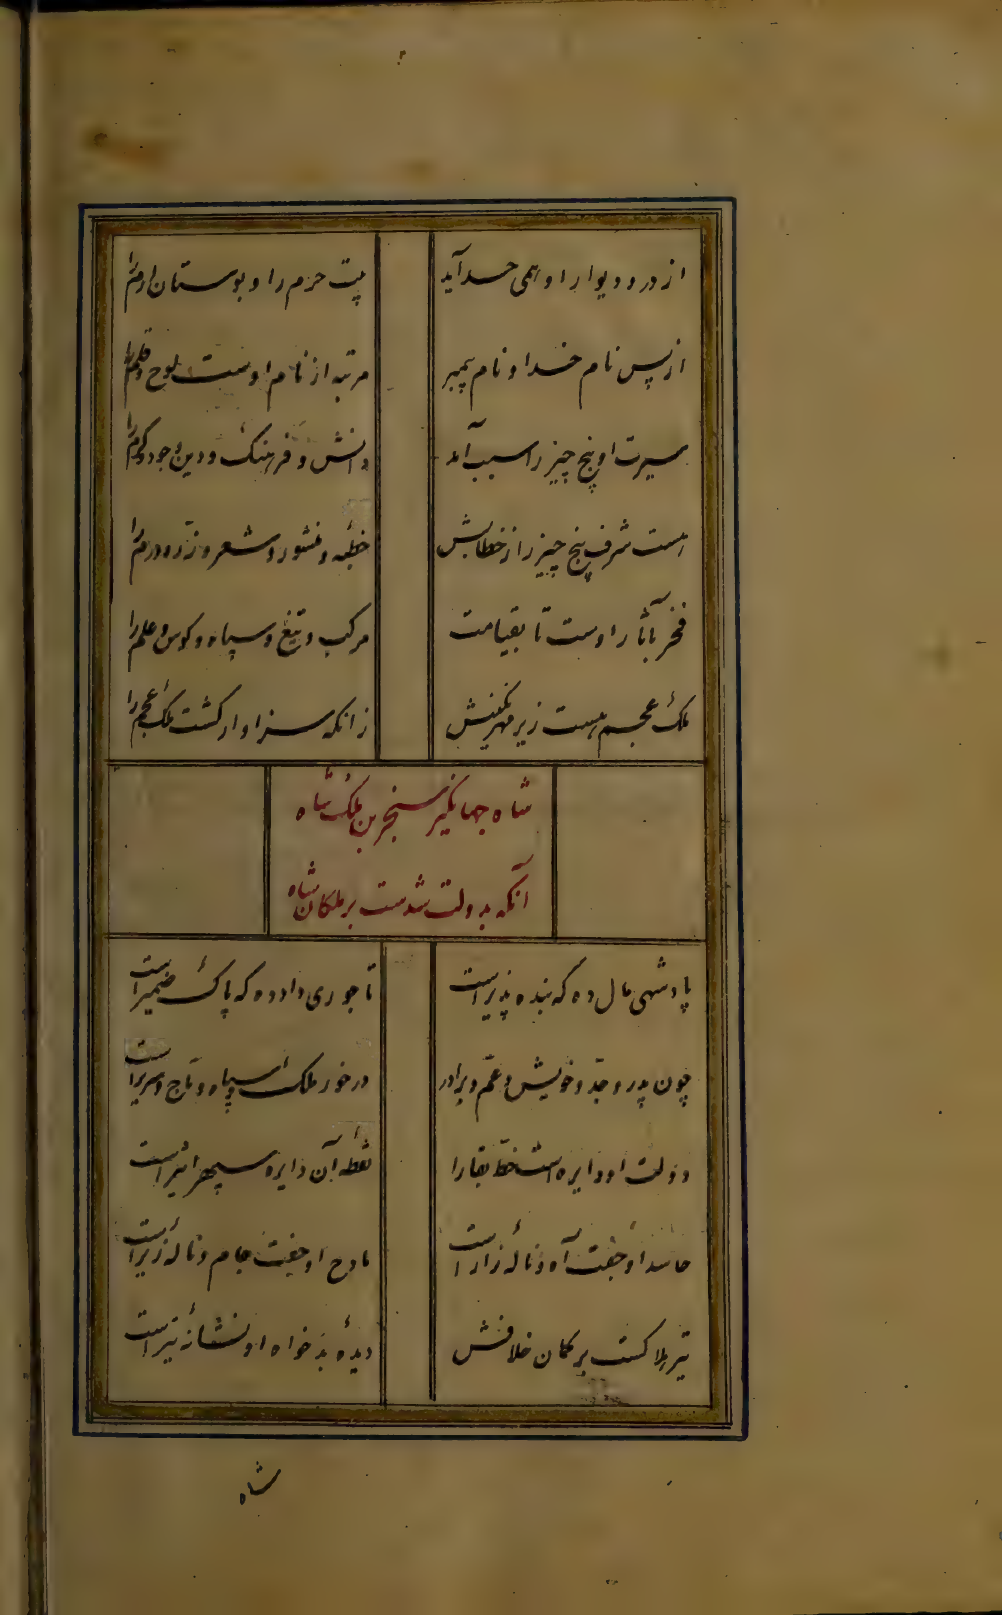 از در و دیوار او همی حسد آید
بیت حرم را و بوستان ارم را
از پس نام خدا و نام پیمبر
مرتبه از نام اوست لوح و قلم را
سیرت او پنج چیز را سبب آمد
دانش و فرهنگ و دین و جود و کرم را
هست شرف پنج چیز را ز خطابش
خطبه و منشور و شعر و زر و درم را
فخر بآثار اوست تا بقیامت
مرکب و تیغ و سپاه و کوس و علم را
ملک عجم هست زیر مهر نگینش
زانکه سزاوار گشت ملک عجم را
شاه جهانگیر سنجر بن ملک شاه
آنکه بدولت شدست بر ملکان شاه
پادشهی مال ده که بنده پذیراست
تاجوری داد ده که پاک ضمیراست
چون پدر و جد و خویش و عم و برادر
در خور ملک و سپاه و تاج و سریراست
دولت او دایره است خط بقا را
نقطه آن دایره سپهر اثیراست
حاسد او جفت آه و ناله زار است
مادح او جفت جام و ناله زیراست
تیر بلا کست بر کمان خلافش
دیده بدخواه او نشانه تیراست
شاه